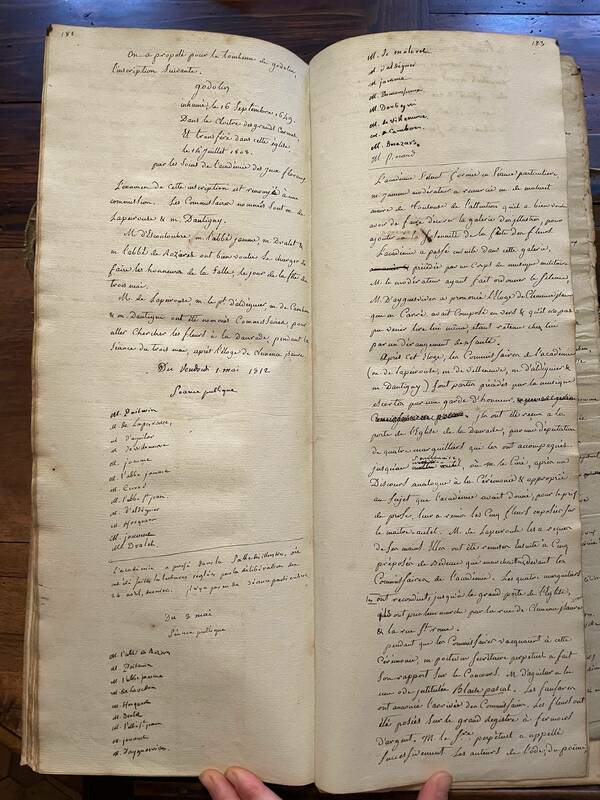 182
On a proposé pour le tombeau de godolin,
l'inscription suivante.
godolin
inhumé, le 16 Septembre 1649.
Dans le Cloître des grands Carmes,
Et transféré dans cette église
le Juillet 1808.
par les Soins de l'académie des Jeux floraux
L'examen de cette inscription est renvoyé à une
commission. Les Commissaires nommés Sont m. de
Lapeirouse & m. Dantigny.
M. D'Escouloubre, m. l'abbé jamme, m. Dralet &
m. l'abbé de Rozières ont bien voulu Se charger de
faire les honneurs de la Salle, le jour de la fête du
trois mai.
M. de Lapeirouse, m. le pt. d'aldéguier, m. de Cambon
& m. Dantigny ont été nommés Commissaires, pour
aller Chercher les fleurs à la daurade, pendant la
Séance du trois mai, après l'éloge de Clémence Isaure
Du Vendredi 1 mai 1812
Séance publique
M. Poitevin
M. de Lapeirouse,
M. d'aguilar
M. de Villeneuve
M. jamme
M. l'abbé jamme
M. Carré
M. l'abbé St. jean
M. d'aldéguier
M. Hocquart
M. jouvent
M. Dralet
L'académie a passé dans la Salle des illustres, où
ont été faites les lectures réglées par la délibération du
26 avril, dernier. il n'y a pas eu de Séance particulière
Du 2 mai
Séance publique
M. l'abbé de Rozières
M. Poitevin
M. l'abbé jamme
M. Hocquart
M. Dralet
M. l'abbé St. jean
M. jouvent
M. d'ayguesvives.
183
M. de malaret
M. d'aldéguier
M. jamme
M. Dantigny
M. de Villeneuve
M. de Cambon
M. Pinaud
L'académie S'étant formée en Séance particulière
m. jamme modérateur a remercié m. de malaret
maire de Toulouse de l'attention qu'il a bien voulu
avoir de faire décorer la galerie d'installation, pour
ajouter à la Solennité de la fête des fleurs.
L'académie a passé ensuite dans cette galerie,
précédée par un Corps de musique militaire
M. le modérateur ayant fait ordonner le Silence,
M. D'ayguesvives a prononcé l'Eloge de Clémence Isaure
que m. Carré, avait Composé en vers & qu'il n'a pas
pu venir lire lui même, étant retenu chez lui
par un dérangement de Santé.
Après cet Eloge, les Commissaires de l'académie
(m. de lapeirouse, m. de Villeneuve, m. d'aldéguier &
m. Dantigny) Sont partis précédés par la musique
escortés par une garde d'honneur.
ils ont été reçus à la
porte de l'Eglise de la Daurade, par une députation
de quatre marguilliers qui les ont accompagnés
jusqu'au Sanctuaire, où m. le Curé, après un
Discours analogue à la Cérémonie & approprié
au Sujet que l'académie avait donné, pour le prix
de prose, leur a remis les Cinq fleurs exposées Sur
le maître autel. M. de Lapeirouse les a reçues
de Ses mains. Elles ont été remises ensuite à Cinq
préposés de Bédeaux qui marchaient devant les
Commissaires de l'académie. Les quatre marguilliers
les ont reconduits, jusqu'à la grand porte de l'Eglise,
ont pris leur marche par la rue de Clémence Isaure
& la rue St. rome.
pendant que les Commissaires vacquaient à cette
Cérémonie, m. poitevin Secrétaire perpétuel a fait
Son rapport Sur le Concours. M. d'aguilar a lu
une ode intitulée Blaise pascal. Les fanfares
ont annoncé l'arrivée des Commissaires. Les fleurs ont
été posées Sur le grand registre à fermoirs
d'argent. M. le Sre. perpétuel a appellé
Successivement Les auteurs de l'ode, du poème